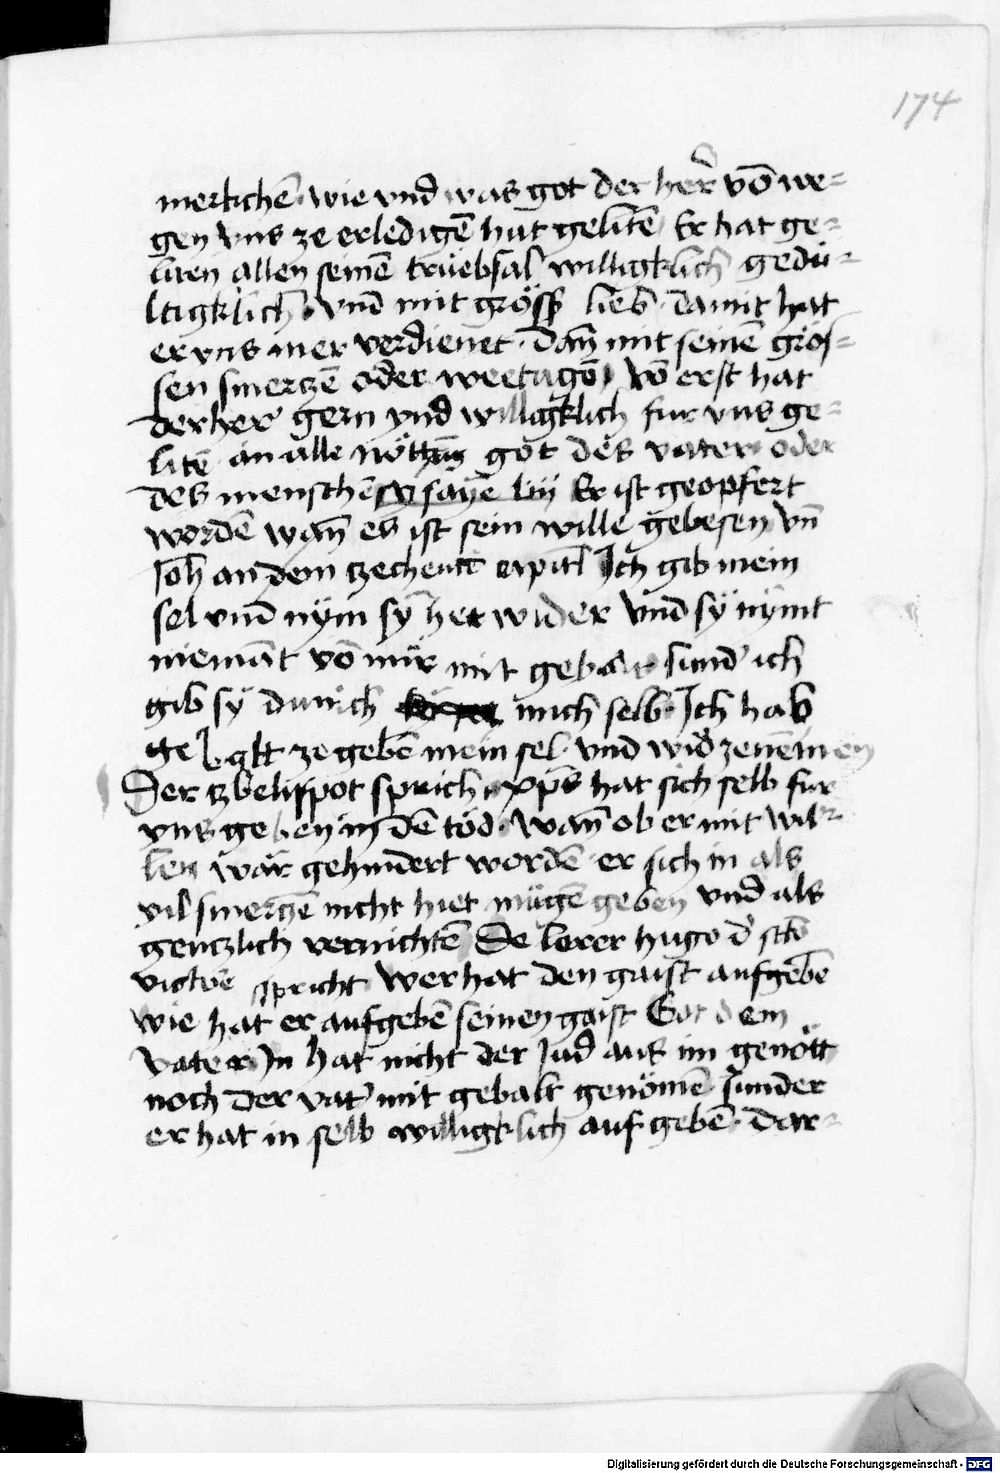 174
merkchē wie vnd was got der her̄ vō we=
gen vns ze erledigē hat gelitē Er hat ge=
liten allen seinē trüebsal willigklich gedu=
ltigklich vnd mit gröss lieb damit hat
er vns mer verdienet · dan̄ mit seinē grös=
sen smerczē oder weetagō vō erst hat
der her gern vnd williglich fur vns ge=
litē an alle nöttūg got des vater oder
des menschē ysaye liij Er ist geopfert
wordē wan̄ es ist sein wille gebesen vn̄
Joh an dem czechent capitl Ich gib mein
sel vnd nym sy her wider vnd sy nymt
niemāt vō mir mit gebalt sund ich
gib sy durich mich selb · Ich hab
gebalt ze gebē mein sel · vnd wid zenemen
Der czbelifpot sprich xp̄s hat sich selb fur
vns geben in dē töd · wan̄ ob er mit wil=
len wär gehindert wordē er sich in als
vil smerczē nicht hiet mügē geben vnd als
genczlich vernichtē De lerer hugo d̄ sctō
victore spricht wer hat den gaist aufgebē
wie hat er aufgebē seinen gaist Got dem
vater In hat nicht der Jud aus im genött
noch der vat mit gebalt genömē sunder
er hat in selb williglich auf gebē · dar=
Digitalisierung gefördert durch die Deutsche Forschungsgemeinschaft - DFG